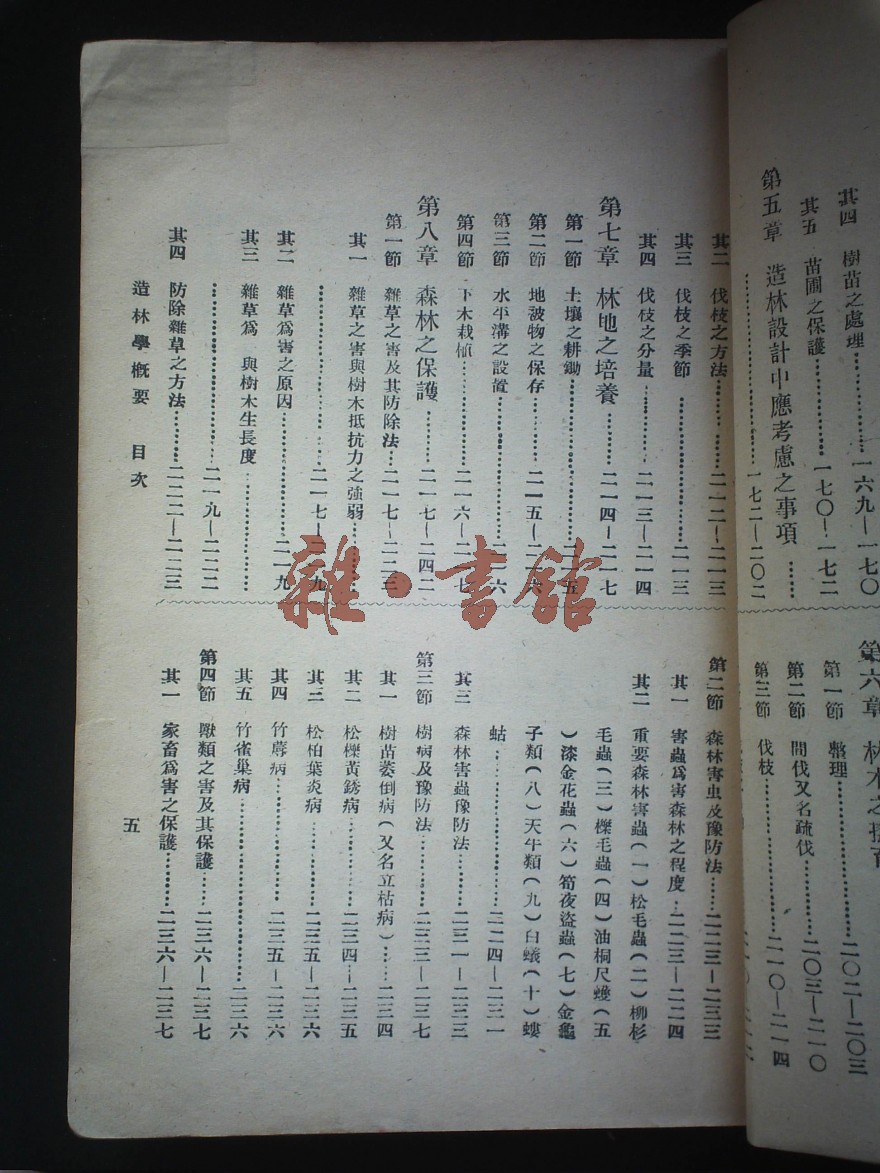 其四 樹苗之處理…………一六九—一七〇
其五 苗圃之保護…………一七〇—一七二
第五章 造林設計中應考慮之事項……
…………一七二—二〇二
第六章 林木之撫育
第一節 整理…………二〇二—二〇三
第二節 間伐又名疏伐…………二〇三—二一〇
第三節 伐枝…………二一〇—二一四
其二 伐枝之方法…………二一二—二一三
其三 伐枝之季節…………二一三
其四 伐枝之分量…………二一三—二一四
第七章 林地之培養…………二一四—二一七
第一節 土壤之耕鋤…………二一五
第二節 地被物之保存…………二一五—二一六
第三節 水平溝之設置…………二一六
第四節 下木栽植…………二一六—二一七
第八章 森林之保護…………二一七—二四二
第一節 雜草之害及其防除法…………二一七—二二三
其一 雜草之害與樹木抵抗力之強弱…………
…………二一七—二一九
其二 雜草爲害之原因…………二一九
其三 雜草爲 與樹木生長度…………
…………二一九—二二二
其四 防除雜草之方法…………二二二—二二三
造林學概要 目次
第二節 森林害虫及豫防法……二二三—二三三
其一 害蟲爲害森林之程度…二二三—二二四
其二 重要森林害蟲(一)松毛蟲(二)柳杉
毛蟲(三)櫟毛蟲(四)油桐尺蠖(五
)漆金花蟲(六)筍夜盜蟲(七)金龜
子類(八)天牛類(九)白蟻(十)螻
蛄…………二二四—二三一
其三 森林害蟲豫防法…………二三一—二三三
第三節 樹病及豫防法…………二三三—二三七
其一 樹苗萎倒病(又名立枯病)……二三四
其二 松櫟黃銹病…………二三四—二三五
其三 松柏葉炎病…………二三五—二三六
其四 竹蓐病…………二三五—二三六
其五 竹雀巢病…………二三六
第四節 獸類之害及其保護……二三六—二三七
其一 家畜爲害之保護…………二三六—二三七
五
雜·書館